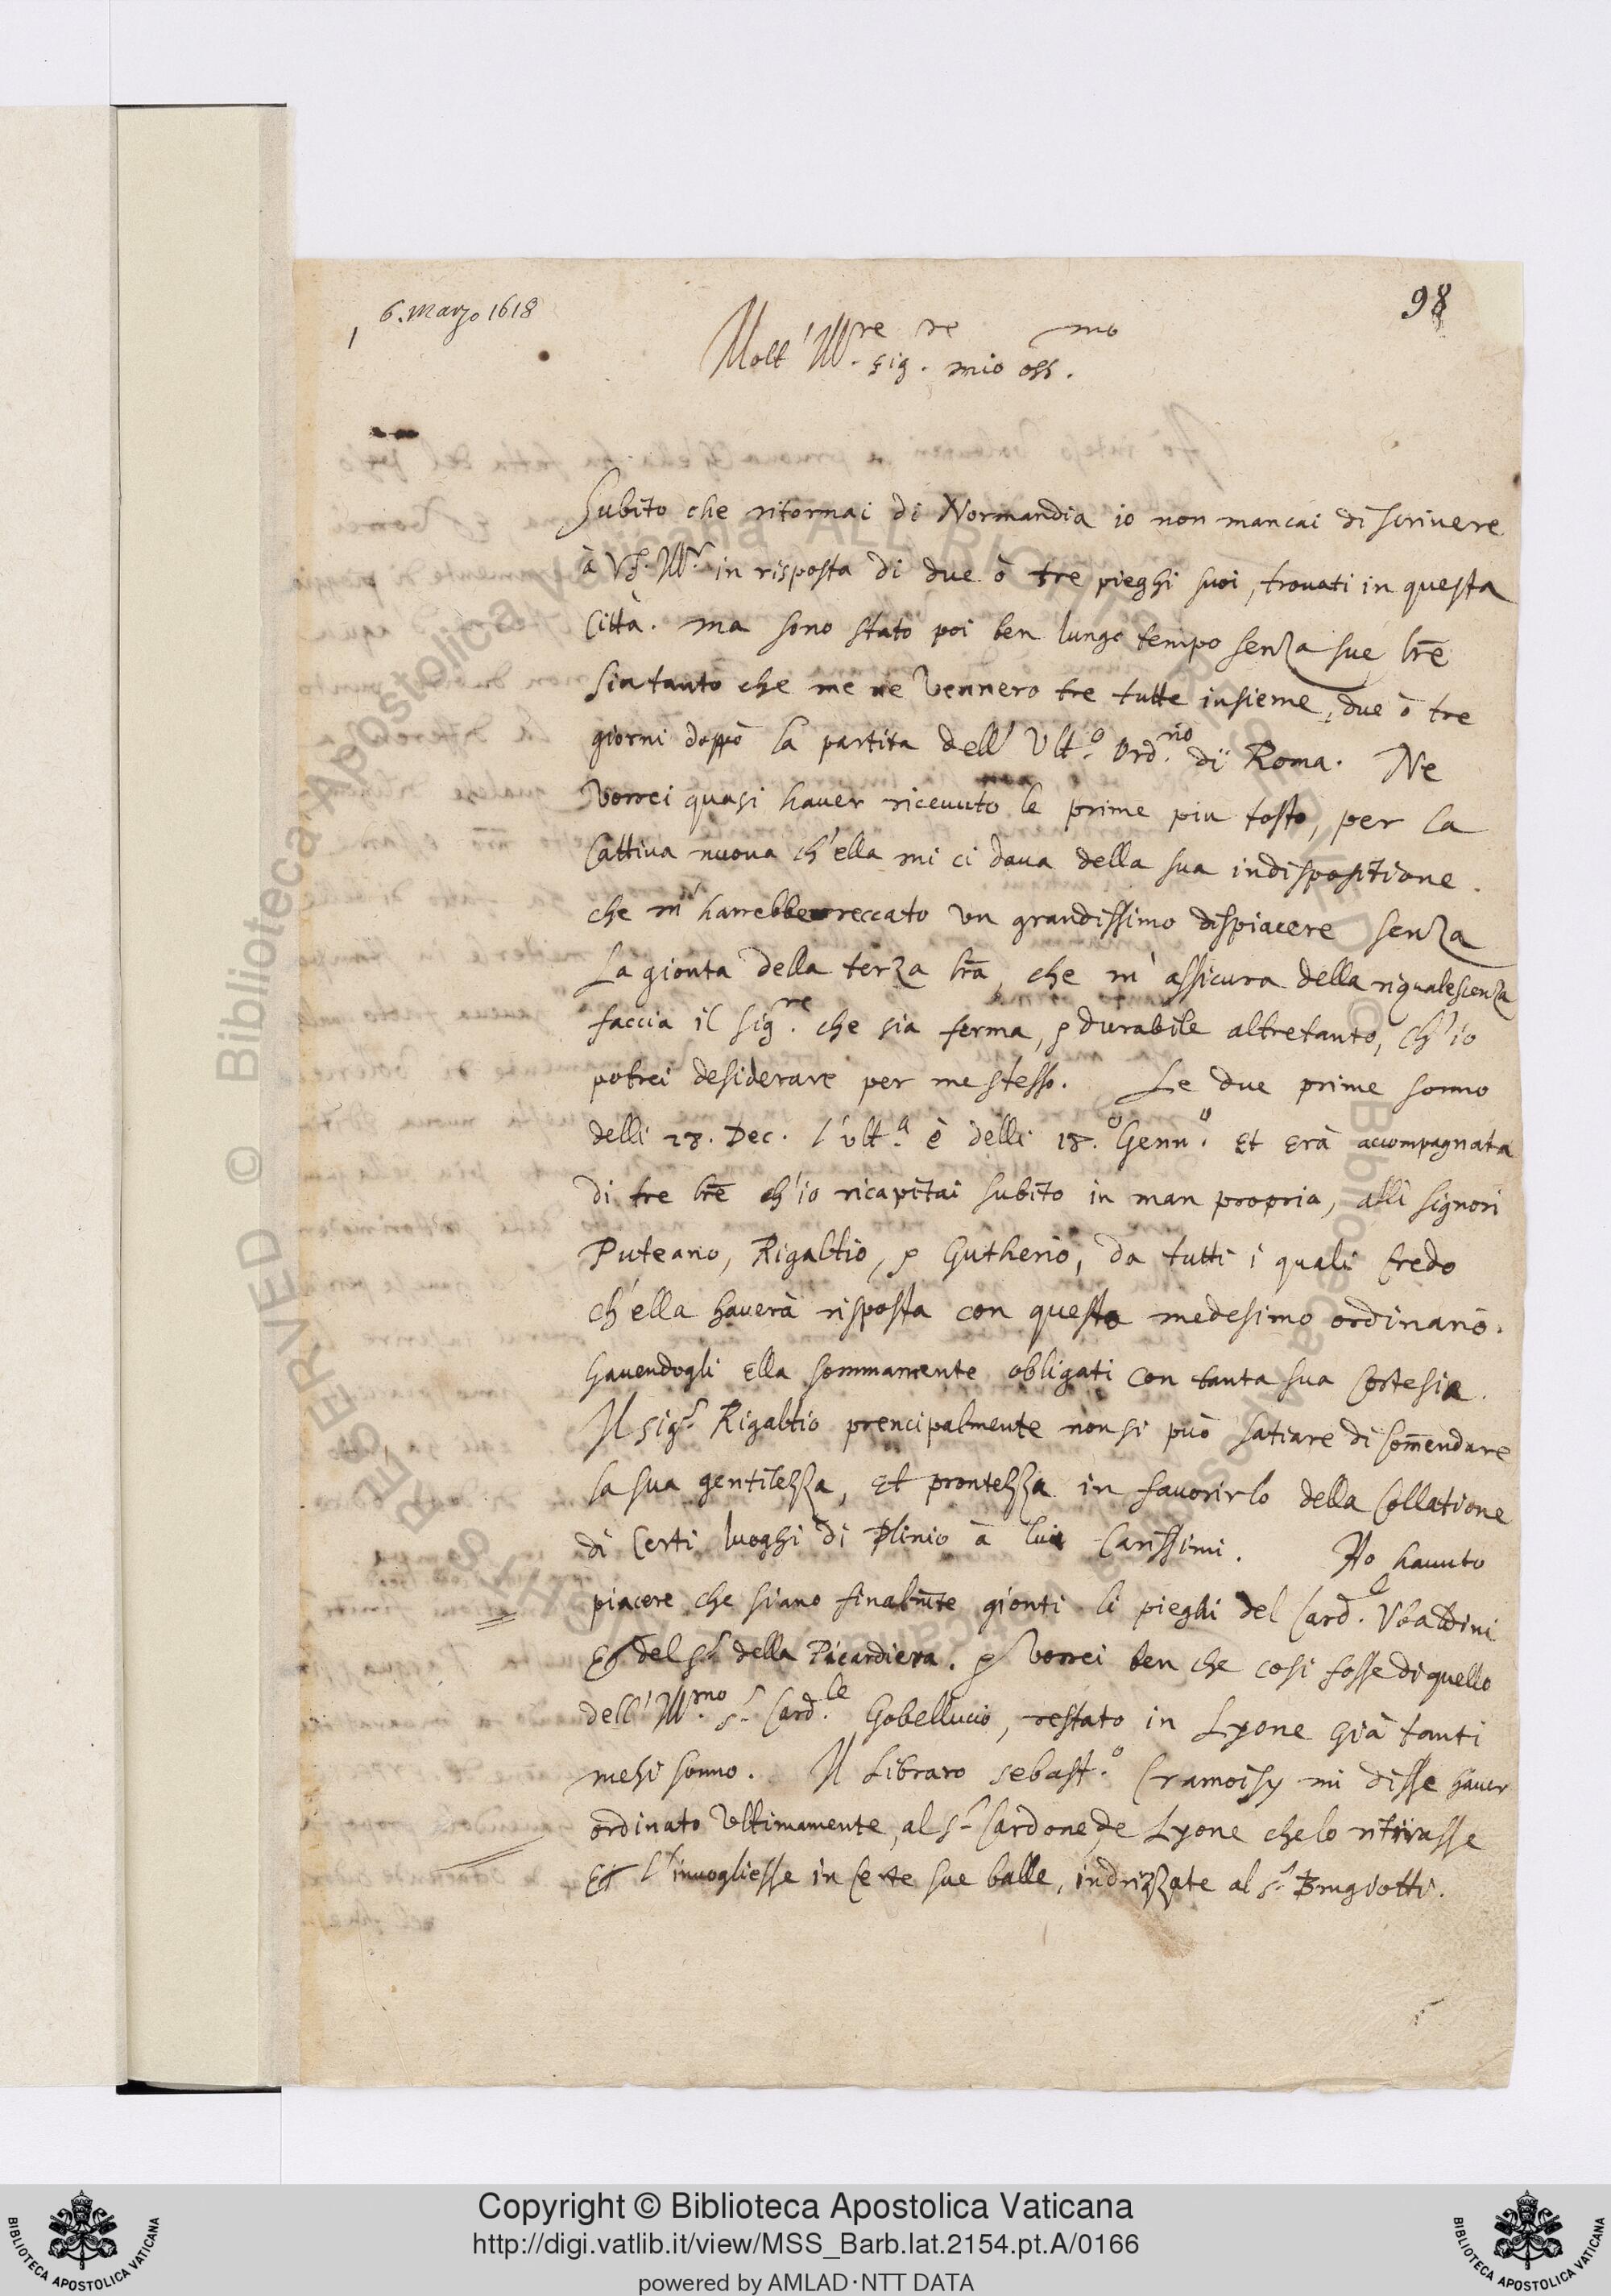 6. Marzo 1618
98
Molt' Ill.re sig.re mio oss.mo
Subito che ritornai di Normandia io non mancai di scrivere
à VS. Ill.r in risposta di due ò tre pieghi suoi, trovati in questa
Città. ma sono stato poi ben lungo tempo senza sue lr̄e
sintanto che me ne vennero tre tutte insieme, due ò tre
giorni doppò la partita dell' Ult.o Ord.rio di Roma. Ne
vorrei quasi haver ricevuto le prime piu tosto, per la
Cattiva nuova ch'ella mi ci dava della sua indispositione.
che m' harrebbe reccato un grandissimo dispiacere senza
La gionta della terza lr̄a, che m' assicura della rigualescenza
faccia il sig.re che sia ferma, & durabile altretanto, ch'io
potrei desiderare per me stesso. Le due prime sonno
delli 28. Dec. l'ult.a è delli 18.o Genn.o Et erà accompagnata
di tre lr̄e ch'io ricapitai subito in man propria, alli signori
Puteano, Rigaltio, & Gutherio, da tutti i quali Credo
ch'ella haverà risposta con questo medesimo ordinario.
havendogli Ella sommamente obligati con tanta sua Cortesia.
Il sig.r Rigaltio prencipalmente non si può satiare di Com̄endare
la sua gentilezza, Et prontezza in favorirlo della Collatione
di Certi luoghi di Plinio à lui Carissimi. Ho havuto
piacere che siano finalm̄te gionti li pieghi del Card.e Ubaldini
Et del s.r della Picardiera. & vorrei ben che cosi fosse di quello
dell' Ill.mo s.r Card.le Gobelluccio, restato in Lyone già tanti
mesi sonno. Il Libraro sebast.o Cramoisy mi disse haver
ordinato Ultimamente, al s.r Cardone de Lyone che lo ritirasse
Et l'invogliesse in Certe sue balle, indrizzate al s.r Brugiotti.
Copyright © Biblioteca Apostolica Vaticana
http://digi.vatlib.it/view/MSS_Barb.lat.2154.pt.A/0166
powered by AMLAD·NTT DATA
BIBLIOTECA APOSTOLICA VATICANA
BIBLIOTECA APOSTOLICA VATICANA